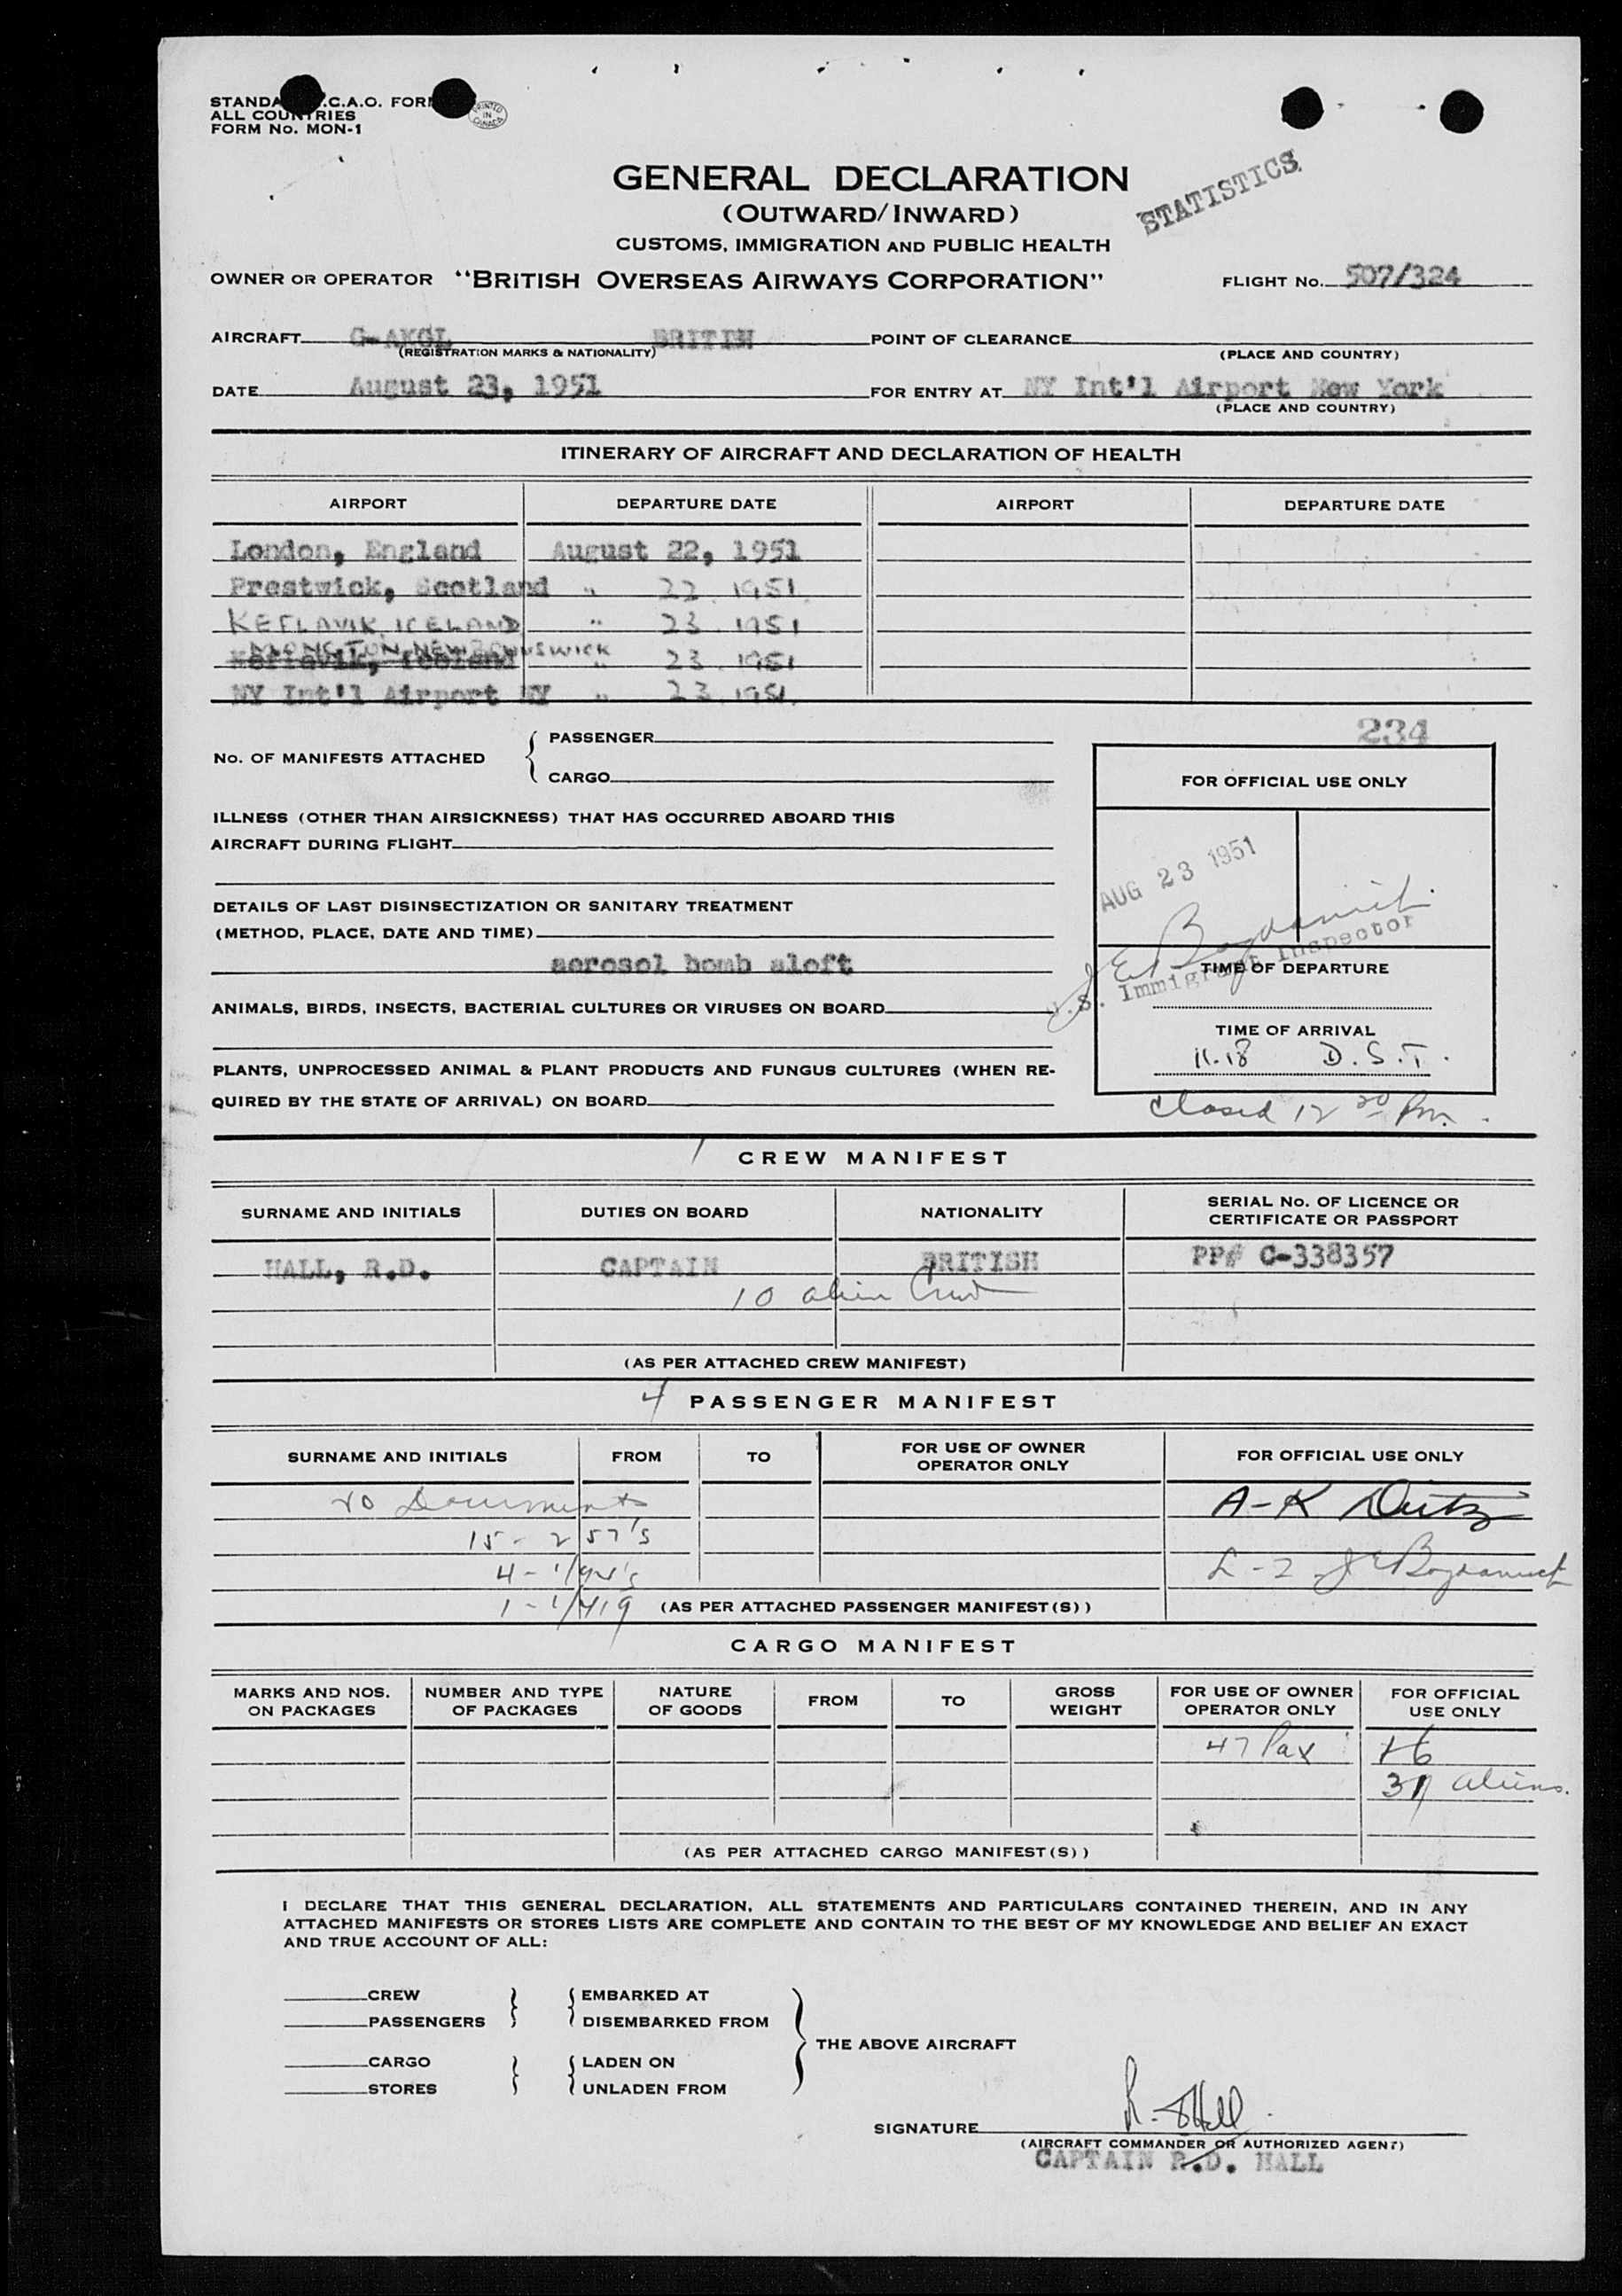 STANDA .C.A.O. FOR
ALL COUNTRIES
FORM No. MON-1
PRINTED IN CANADA
GENERAL DECLARATION
STATISTICS
(OUTWARD/INWARD)
CUSTOMS, IMMIGRATION AND PUBLIC HEALTH
OWNER OR OPERATOR "BRITISH OVERSEAS AIRWAYS CORPORATION" FLIGHT No. 507/324
AIRCRAFT G-AKGL BRITISH POINT OF CLEARANCE
(REGISTRATION MARKS & NATIONALITY) (PLACE AND COUNTRY)
DATE August 23, 1951 FOR ENTRY AT NY Int'l Airport New York
(PLACE AND COUNTRY)
ITINERARY OF AIRCRAFT AND DECLARATION OF HEALTH
AIRPORT DEPARTURE DATE AIRPORT DEPARTURE DATE
London, England August 22, 1951
Prestwick, Scotland " 22. 1951
KEFLAVIK, ICELAND " 23 1951
MONCTON NEW BRUNSWICK
Keflavik, Iceland " 23. 1951
NY Int'l Airport NY " 23. 1951.
234
No. OF MANIFESTS ATTACHED
PASSENGER
CARGO
FOR OFFICIAL USE ONLY
ILLNESS (OTHER THAN AIRSICKNESS) THAT HAS OCCURRED ABOARD THIS
AIRCRAFT DURING FLIGHT
AUG 23 1951
DETAILS OF LAST DISINSECTIZATION OR SANITARY TREATMENT
(METHOD, PLACE, DATE AND TIME)
aerosol bomb aloft
U.S. Immigrant Inspector
TIME OF DEPARTURE
ANIMALS, BIRDS, INSECTS, BACTERIAL CULTURES OR VIRUSES ON BOARD
TIME OF ARRIVAL
11.18 D.S.T.
PLANTS, UNPROCESSED ANIMAL & PLANT PRODUCTS AND FUNGUS CULTURES (WHEN RE-
QUIRED BY THE STATE OF ARRIVAL) ON BOARD
Closed 12 20 Pm.
1 CREW MANIFEST
SURNAME AND INITIALS DUTIES ON BOARD NATIONALITY SERIAL No. OF LICENCE OR
CERTIFICATE OR PASSPORT
HALL, R.D. CAPTAIN BRITISH PP# C-338357
10 alien Crew
(AS PER ATTACHED CREW MANIFEST)
4 PASSENGER MANIFEST
SURNAME AND INITIALS FROM TO FOR USE OF OWNER
OPERATOR ONLY FOR OFFICIAL USE ONLY
20 Documents A-K
15 - 257's
4 - L-Z J E Bogdanich
1 - 1/419 (AS PER ATTACHED PASSENGER MANIFEST(S))
CARGO MANIFEST
MARKS AND NOS.
ON PACKAGES NUMBER AND TYPE
OF PACKAGES NATURE
OF GOODS FROM TO GROSS
WEIGHT FOR USE OF OWNER
OPERATOR ONLY FOR OFFICIAL
USE ONLY
47 Pax
aliens.
(AS PER ATTACHED CARGO MANIFEST(S))
I DECLARE THAT THIS GENERAL DECLARATION, ALL STATEMENTS AND PARTICULARS CONTAINED THEREIN, AND IN ANY
ATTACHED MANIFESTS OR STORES LISTS ARE COMPLETE AND CONTAIN TO THE BEST OF MY KNOWLEDGE AND BELIEF AN EXACT
AND TRUE ACCOUNT OF ALL:
CREW EMBARKED AT
PASSENGERS DISEMBARKED FROM
THE ABOVE AIRCRAFT
CARGO LADEN ON
STORES UNLADEN FROM
SIGNATURE
(AIRCRAFT COMMANDER OR AUTHORIZED AGENT)
CAPTAIN R.D. HALL